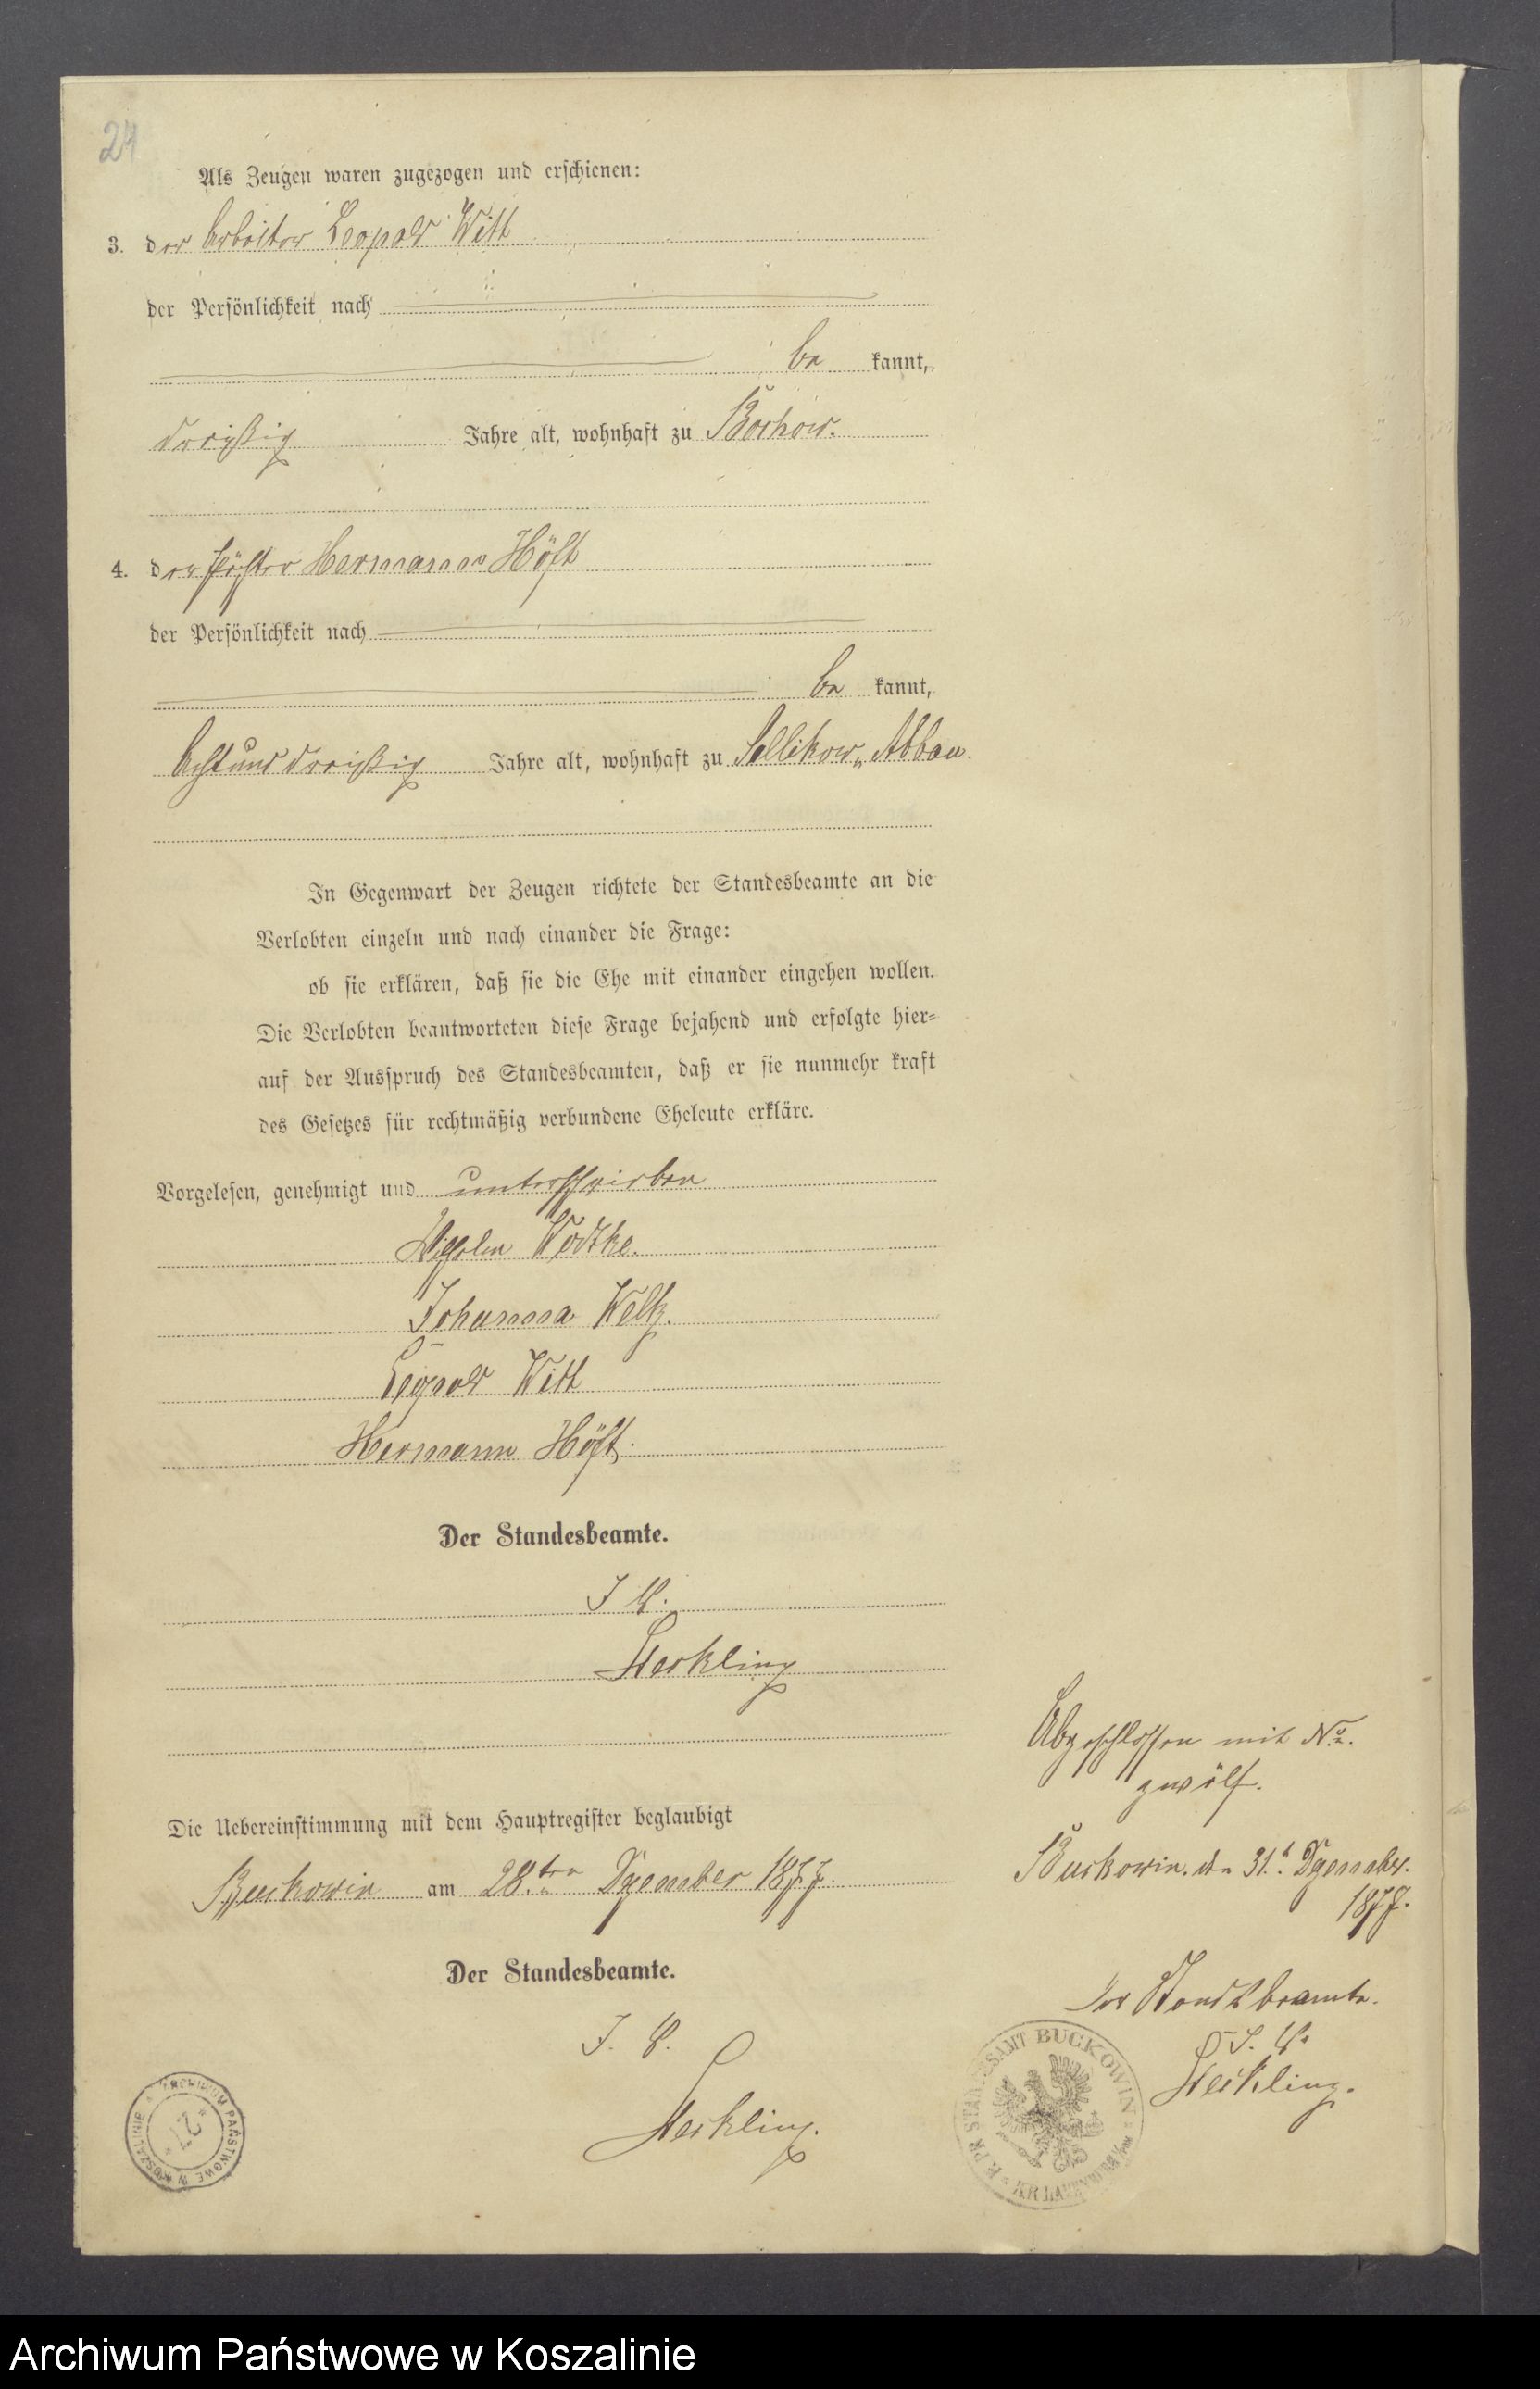 24
Als Zeugen waren zugezogen und erschienen:
3. der Arbeiter Leopold Witt
der Persönlichkeit nach
be kannt,
dreißig Jahre alt, wohnhaft zu Bochow.
4. der Hermann Höft
der Persönlichkeit nach
be kannt,
Achtunddreißig Jahre alt, wohnhaft zu Sellikow, Abbau.
In Gegenwart der Zeugen richtete der Standesbeamte an die
Verlobten einzeln und nach einander die Frage:
ob sie erklären, daß sie die Ehe mit einander eingehen wollen.
Die Verlobten beantworteten diese Frage bejahend und erfolgte hier=
auf der Ausspruch des Standesbeamten, daß er sie nunmehr kraft
des Gesetzes für rechtmäßig verbundene Eheleute erkläre.
Vorgelesen, genehmigt und unterschrieben
Wilhelm Wodtke.
Johanna Welk.
Leopold Witt
Hermann Höft.
Der Standesbeamte.
I. V.
Die Uebereinstimmung mit dem Hauptregister beglaubigt
Buckowin am 28.ten Dezember 1877.
Der Standesbeamte.
I. V.
Abgeschlossen mit No.
zwölf.
Buckowin. den 31.t Dezember.
1877.
Der Standesbeamte.
I. V.
K. PR STANDESAMT BUCKOWIN
KR LAUENBURG
ARCHIWUM PAŃSTWOWE W KOSZALINIE
Archiwum Państwowe w Koszalinie